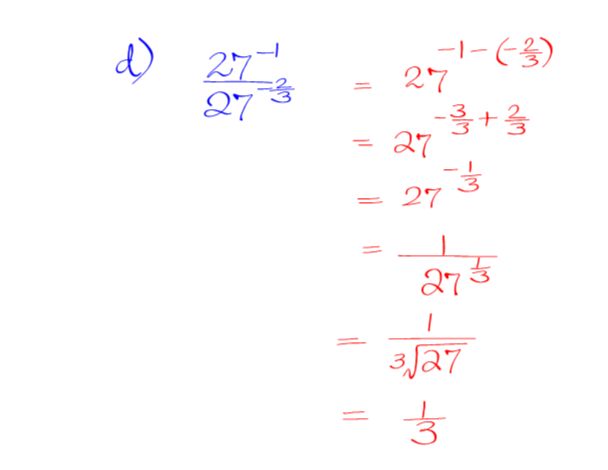 d) 27^-1 / 27^-2/3 = 27^-1-(-2/3)
= 27^-3/3+2/3
= 27^-1/3
= 1 / 27^1/3
= 1 / ³√27
= 1/3